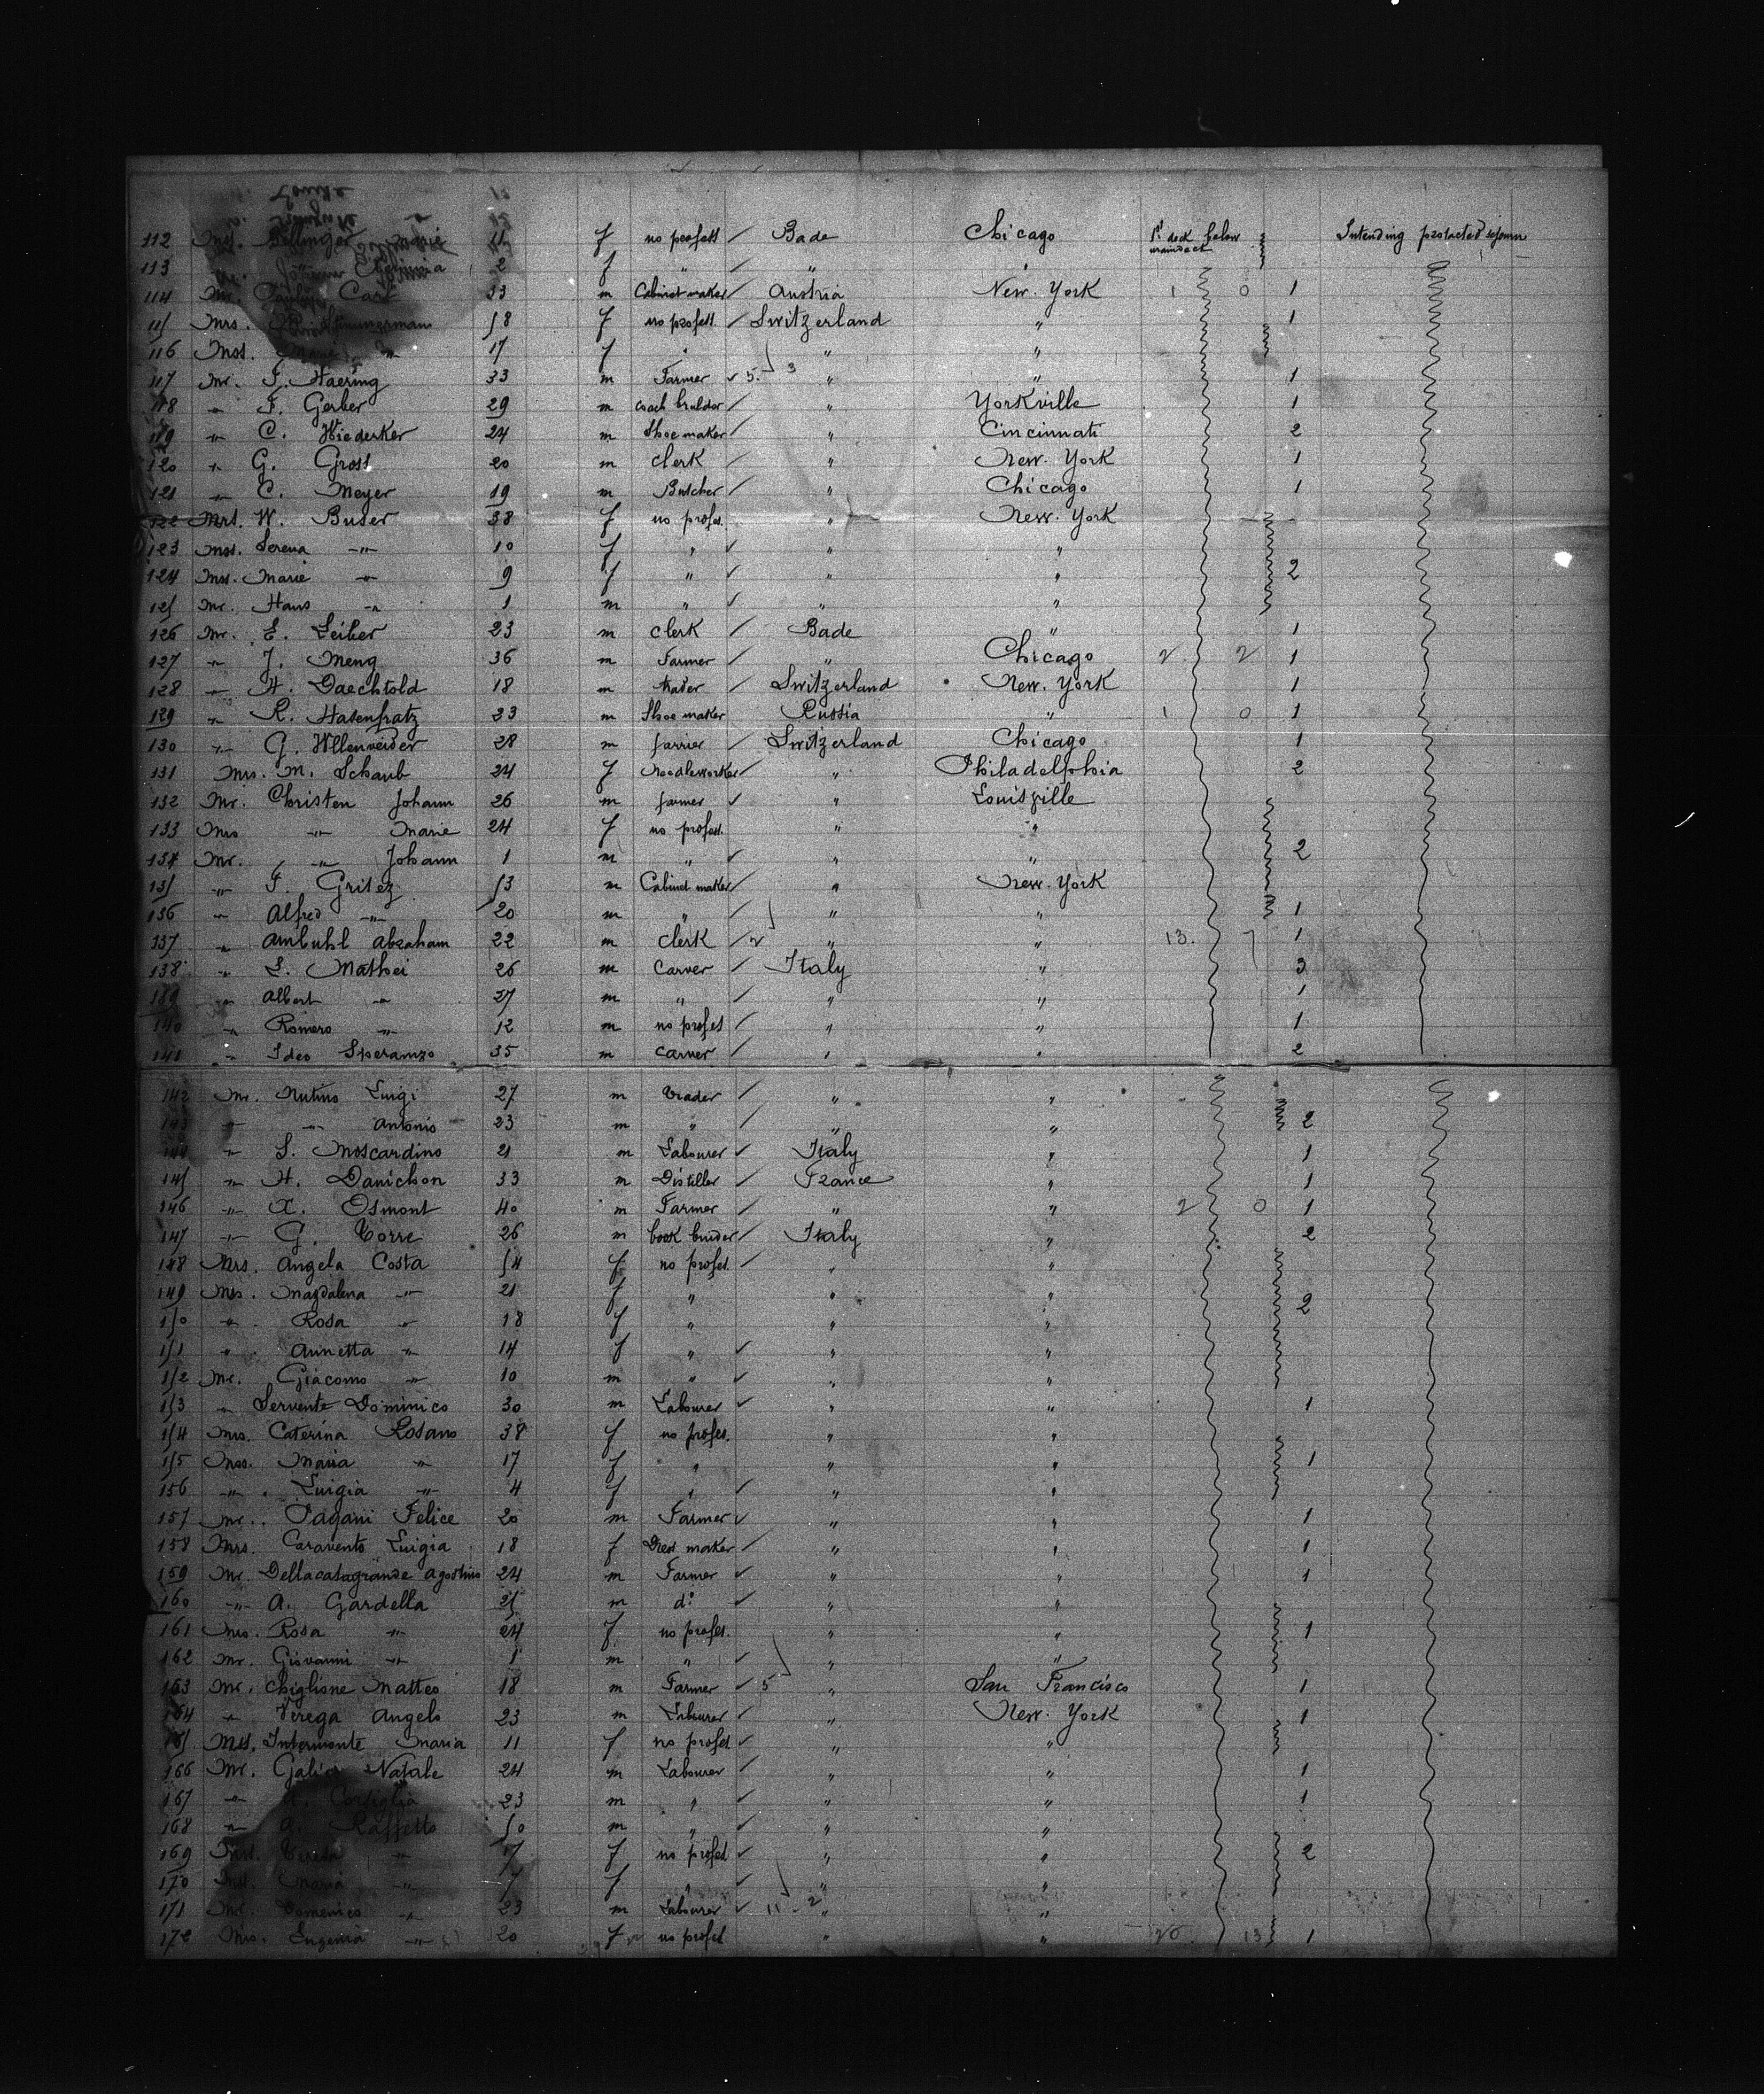 112 Mss. Bellinger Marie 11 f no profess / Bade Chicago 1st deck below maindeck Intending protacted sejourn
113 " 2 f " / " "
114 Mr. Carl 33 m Cabinet maker / Austria New. York 1 0 1
115 Mrs. Zimmerman 58 f no profess. / Switzerland " 1
116 Mss. Marie " 17 f " " "
117 Mr. F. Haering 33 m Farmer ✓ 5. 3 " " 1
118 " F. Gerber 29 m coach builder / " Yorkville 1
119 " C. Hiederker 24 m Shoe maker / " Cincinnati 2
120 " G. Gross 20 m clerk / " New. York 1
121 " C. Meyer 19 m Butcher / " Chicago 1
122 Mrs. W. Buser 38 f no profes. " New. York
123 Mss. Serena " 10 f " ✓ " "
124 Mss. Marie " 9 f " ✓ " " 2
125 Mr. Hans " 1 m " ✓ " "
126 Mr. E. Leiber 23 m clerk / Bade " 1
127 " J. Meng 36 m Farmer / " Chicago 2 2 1
128 " H. Daechtold 18 m trader / Switzerland New. York 1
129 " R. Hasenfratz 33 m Shoe maker Russia " 1 0 1
130 " G. Wllenveider 28 m farrier / Switzerland Chicago 1
131 Mrs. M. Schaub 24 f Needleworker " Philadelphia 2
132 Mr. Christen Johann 26 m farmer ✓ " Louisville
133 Mrs " Marie 24 f no profess. " "
134 Mr. " Johann 1 m " ✓ " " 2
135 " F. Gritez 53 m Cabinet maker / " New. York
136 " Alfred " 20 m " / " " 1
137 " Ambuhl Abraham 22 m clerk / 2 " " 13. 7 1
138 " L. Mathei 26 m Carver / Italy " 3
139 " Albert " 27 m " / " " 1
140 " Romero " 12 m no profes / " " 1
141 " Ideo Speranzo 35 m Carver / " " 2
142 Mr. Nutino Luigi 27 m trader / " "
143 " " Antonio 23 m " / " " 2
144 " S. Moscardino 21 m Labourer ✓ Italy " 1
145 " H. Danichon 33 m Distiller / France " 1
146 " X. Osmont 40 m Farmer / " " 2 0 1
147 " G. Torre 26 m book binder / Italy " 2
148 Mrs. Angela Costa 54 f no profes. / " "
149 Mss. Magdalena " 21 f " " " 2
150 " Rosa " 18 f " " "
151 " Annetta " 14 f " ✓ " "
152 Mr. Giacomo " 10 m " ✓ " "
153 " Servente Dominico 30 m Labourer ✓ " " 1
154 Mrs. Caterina Rosano 38 f no profes. " "
155 Mss. Maria " 17 f " " " 1
156 " Luigia " 4 f " ✓ " "
157 Mr. Pagani Felice 20 m Farmer ✓ " " 1
158 Mrs. Caravento Luigia 18 f Dress maker / " " 1
159 Mr. Dellacasagrande Agostino 24 m Farmer ✓ " " 1
160 " A. Gardella 25 m do ✓ " "
161 Mrs. Rosa " 24 f no profes. " " 1
162 Mr. Giovanni " 1 m " ✓ " "
163 Mr. Chiglione Matteo 18 m Farmer ✓ 5 " San Francisco 1
164 " Verega Angelo 23 m Labourer ✓ " New. York 1
165 Mss. Intermonte Maria 11 f no profes ✓ " "
166 Mr. Galia Natale 24 m Labourer ✓ " " 1
167 " Corfiglia 23 m " ✓ " " 1
168 " A. Raffetto 50 m " ✓ " "
169 Mss. Teresa " 17 f no profes ✓ " " 2
170 Mss. Maria " 7 f " ✓ " "
171 Mr. Domenico " 23 m Labourer ✓ 11 - 2 " "
172 Mrs. Eugenia " 20 f no profes " " 20. 13 1